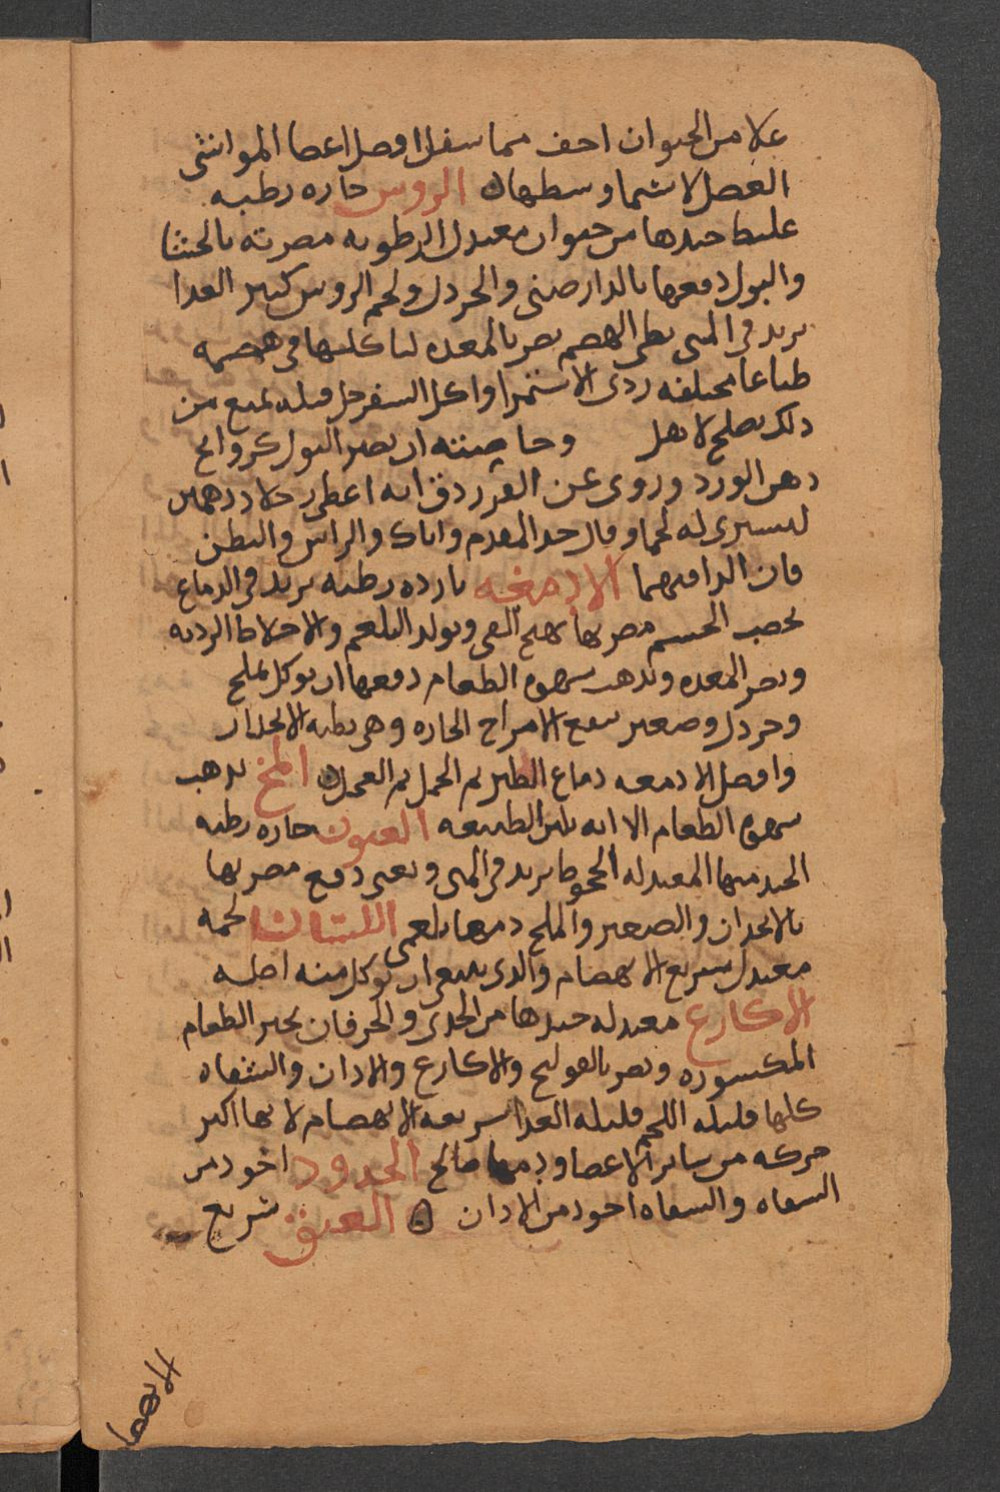 علا من الحيوان اخف مما سفل وافضل اعضا المواشي
العضل لا سيما وسطها الروس حاره رطبه
غليظ جيدها من حيوان معتدل الرطوبه مضرته بالجشا
والبول دفعها بالدارصيني والخردل ولحم الروس كثير الغذا
يزيد في المني بطي الهضم يضر بالمعده لنا كلها في هضمه
طباعا مختلفه ردي الاستمرا واكل السفرجل قبله يمنع من
ذلك يصلح لاهل وخاصيته ان يصير البول كروائح
دهن الورد وروي عن الفرزدق انه اعطى رجلا درهمين
ليشتري له لحما وقال خذ المقدم واياك والراس والبطن
فان الدا فيهما الادمغه بارده رطبه تزيد في الدماغ
تخصب الجسم مضرتها تهيج القي وتولد البلغم والاخلاط الرديه
وتضر المعده وتذهب شهوه الطعام دفعها ان توكل بملح
وخردل وصعتر تنفع الامزاج الحاره وهي بطيه الانحدار
وافضل الادمغه دماغ الطير ثم الحمل ثم العجل المخ يذهب
شهوه الطعام الا انه يلين الطبيعه العيون حاره رطبه
الجيد منها المعتدله الجحوظ تزيد في المني وتغثي دفع مضرتها
بالانجدان والصعتر والملح دمها بلغمي اللسان لحمه
معتدل سريع الانهضام والذي ينبغي ان يوكل منه اصله
الاكارع معتدله جيدها من الجدي والخرفان تجبر العظام
المكسوره وتضر بالقولنج والاكارع والاذان والشفاه
كلها قليله اللحم قليله الغذا سريعه الانهضام لانها اكثر
حركه من ساير الاعضا ودمها صالح الخدود اجود من
الشفاه والشفاه اجود من الاذان ه العنق سريع
الانهضا